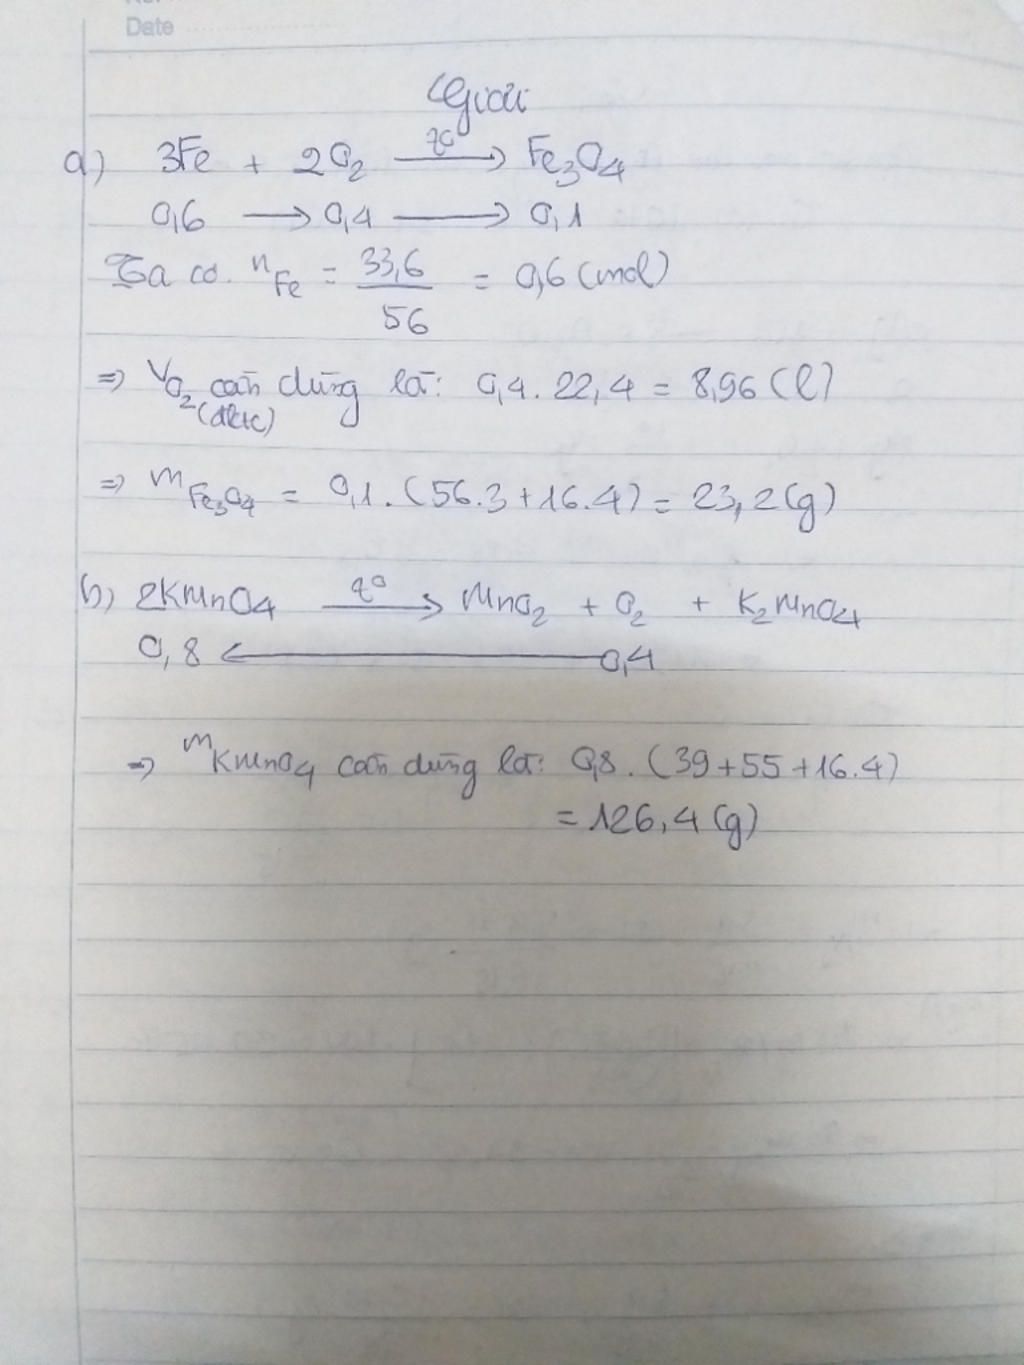 Date
Giải
a) 3Fe + 2O₂ —t°→ Fe₃O₄
0,6 → 0,4 → 0,1
Ta có. nFe = 33,6/56 = 0,6 (mol)
=> VO₂ (đktc) cần dùng là: 0,4. 22,4 = 8,96 (l)
=> mFe₃O₄ = 0,1. (56.3+16.4) = 23,2 (g)
b) 2KMnO₄ —t°→ MnO₂ + O₂ + K₂MnO₄
0,8 ← 0,4
=> mKMnO₄ cần dùng là: 0,8. (39+55+16.4)
= 126,4 (g)